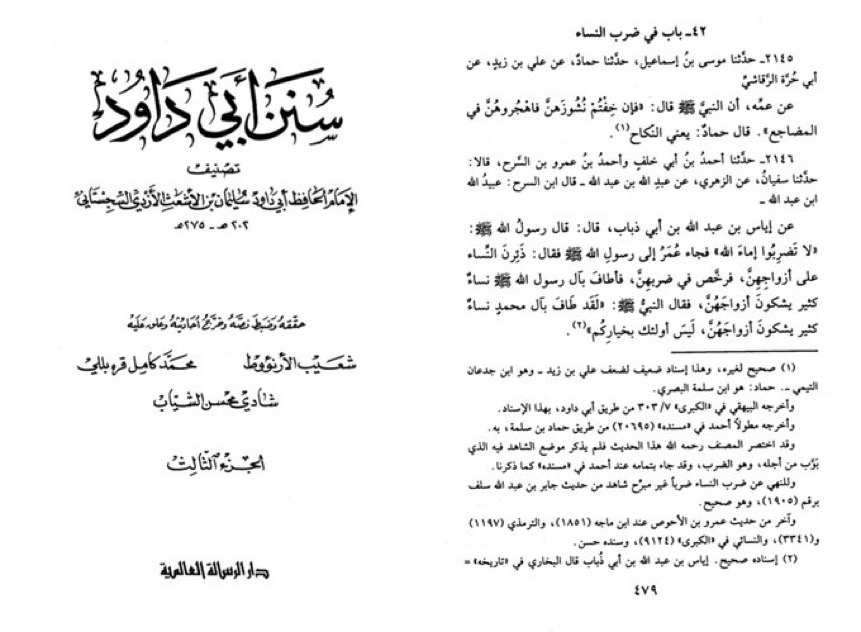 سُنَن أَبي دَاوُد
تصنيف
الإمام الحافظ أبي داود سليمان بن الأشعث الأزدي السجستاني
٢٠٢ هـ - ٢٧٥ هـ
حققه وضبط نصه وخرج أحاديثه وعلق عليه
شعيب الأرنؤوط محمد كامل قره بللي
شادي محسن الشياب
الجزء الثالث
دار الرسالة العالمية
٤٢ـ باب في ضرب النساء
٢١٤٥ـ حدَّثنا موسى بنُ إسماعيل، حدَّثنا حمادٌ، عن علي بن زيدٍ، عن
أبي حُرَّة الرَّقاشيِّ
عن عمِّه، أن النبيَّ ﷺ قال: «فإن خِفْتُمْ نُشُوزَهنَّ فاهْجُروهُنَّ في
المضاجع». قال حمادٌ: يعني النِّكاح(١).
٢١٤٦ـ حدَّثنا أحمدُ بنُ أبي خلفٍ وأحمدُ بنُ عمرو بن السَّرح، قالا:
حدَّثنا سفيانُ، عن الزهري، عن عبدِ الله بن عبد الله ـ قال ابن السرح: عبيدُ الله
ابن عبد الله ـ
عن إياس بن عبد الله بن أبي ذباب، قال: قال رسولُ الله ﷺ:
«لا تَضرِبُوا إماءَ الله» فجاء عُمَرُ إلى رسولِ الله ﷺ فقال: ذَئِرنَ النِّساء
على أزواجِهِنَّ، فرخَّص في ضربهِنَّ، فأطافَ بآل رسول الله ﷺ نساءٌ
كثير يشكونَ أزواجَهُنَّ، فقال النبيُّ ﷺ: «لَقَد طَافَ بآل محمدٍ نساءٌ
كثير يشكونَ أزواجَهُنَّ، لَيسَ أولئك بخيارِكُم»(٢).
(١) صحيح لغيره، وهذا إسناد ضعيف لضعف علي بن زيد ـ وهو ابن جدعان
التيمي ـ. حماد: هو ابن سلمة البصري.
وأخرجه البيهقي في «الكبرى» ٣٠٣/٧ من طريق أبي داود، بهذا الإسناد.
وأخرجه مطولاً أحمد في «مسنده» (٢٠٦٩٥) من طريق حماد بن سلمة، به.
وقد اختصر المصنف رحمه الله هذا الحديث فلم يذكر موضع الشاهد فيه الذي
بَوَّب من أجله، وهو الضرب، وقد جاء بتمامه عند أحمد في «مسنده» كما ذكرنا.
وللنهي عن ضرب النساء ضرباً غير مبرِّح شاهد من حديث جابر بن عبد الله سلف
برقم (١٩٠٥)، وهو صحيح.
وآخر من حديث عمرو بن الأحوص عند ابن ماجه (١٨٥١)، والترمذي (١١٩٧)
و(٣٣٤١)، والنسائي في «الكبرى» (٩١٢٤)، وسنده حسن.
(٢) إسناده صحيح. إياس بن عبد الله بن أبي ذُباب قال البخاري في «تاريخه» =
٤٧٩